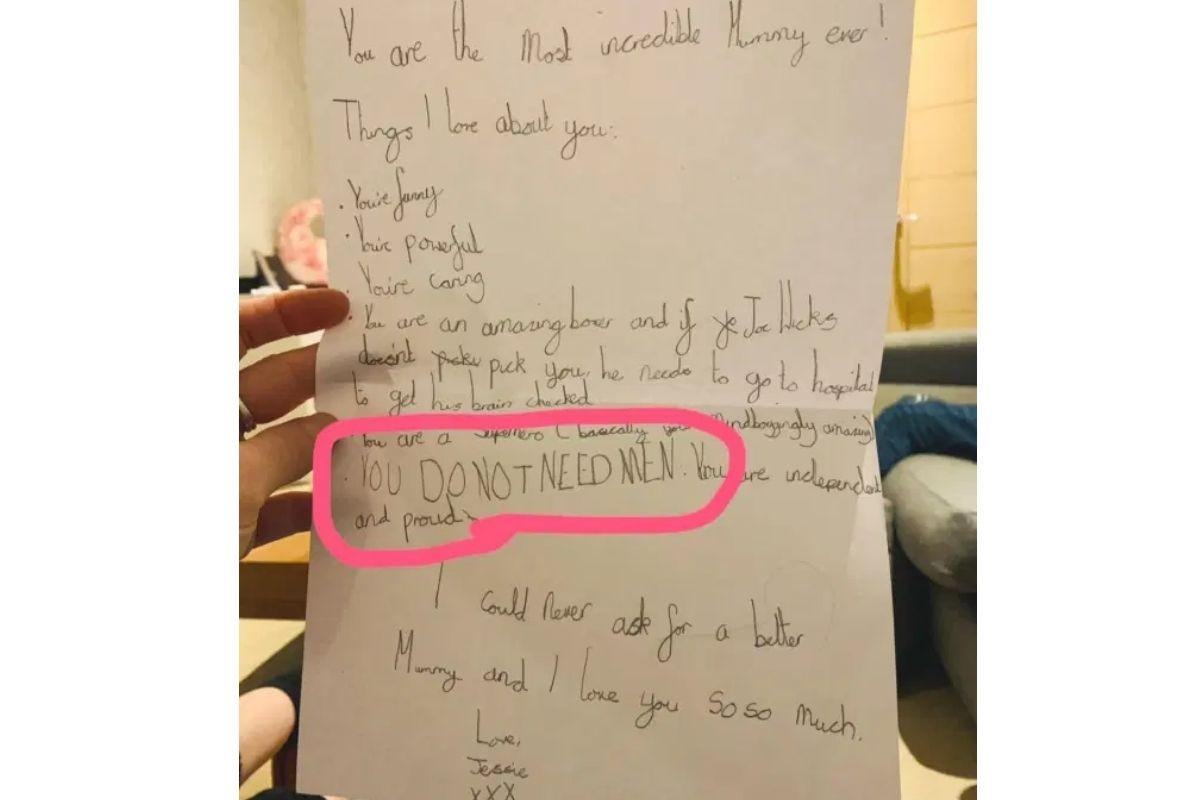 You are the Most incredible Mummy ever!
Things I love about you:
· You're funny
· You're powerful
· You're caring
· You are an amazing boxer and if Joe Wicks
doesn't pick you, he needs to go to hospital
to get his brain checked
You are a superhero (basically your mindboggingly amazing)
· YOU DO NOT NEED MEN. You are independent
and proud
I could never ask for a better
Mummy and I love you so so much.
Love,
Jessie
xxx